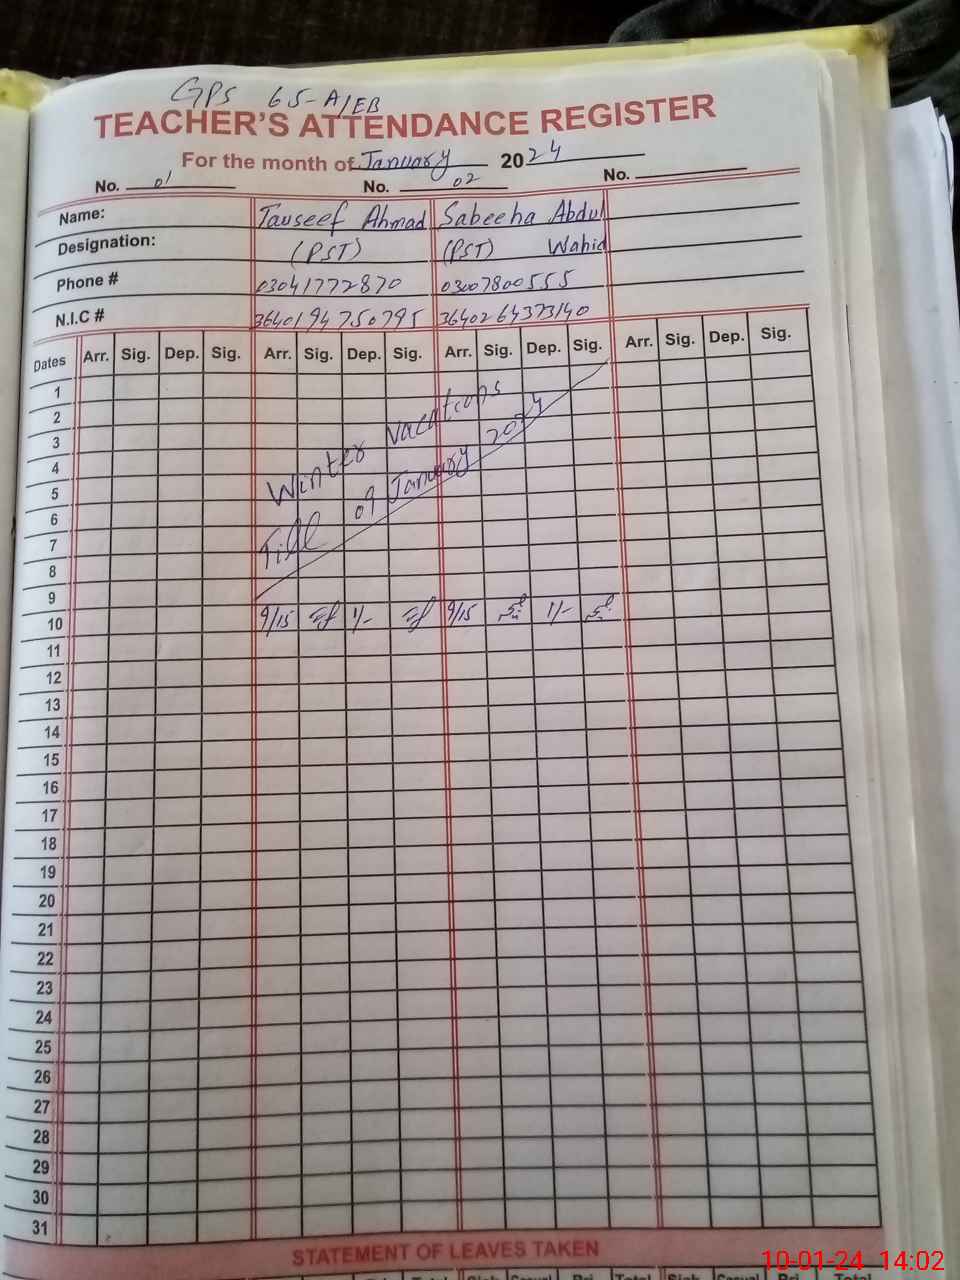 GPS 65-A/EB
TEACHER'S ATTENDANCE REGISTER
For the month of January 2024
No. 01 No. 02 No.
Name: Tauseef Ahmad Sabeeha Abdul
Designation: (PST) (PST) Wahid
Phone # 03041772870 03007800555
N.I.C # 3640194750795 3640264373140
Dates Arr. Sig. Dep. Sig. Arr. Sig. Dep. Sig. Arr. Sig. Dep. Sig. Arr. Sig. Dep. Sig.
1
2
3
4
5
6
7
8
9
Winter Vacations
Till 09 January 2024
10 9/15 1/- 9/15 1/-
11
12
13
14
15
16
17
18
19
20
21
22
23
24
25
26
27
28
29
30
31
STATEMENT OF LEAVES TAKEN
10-01-24 14:02